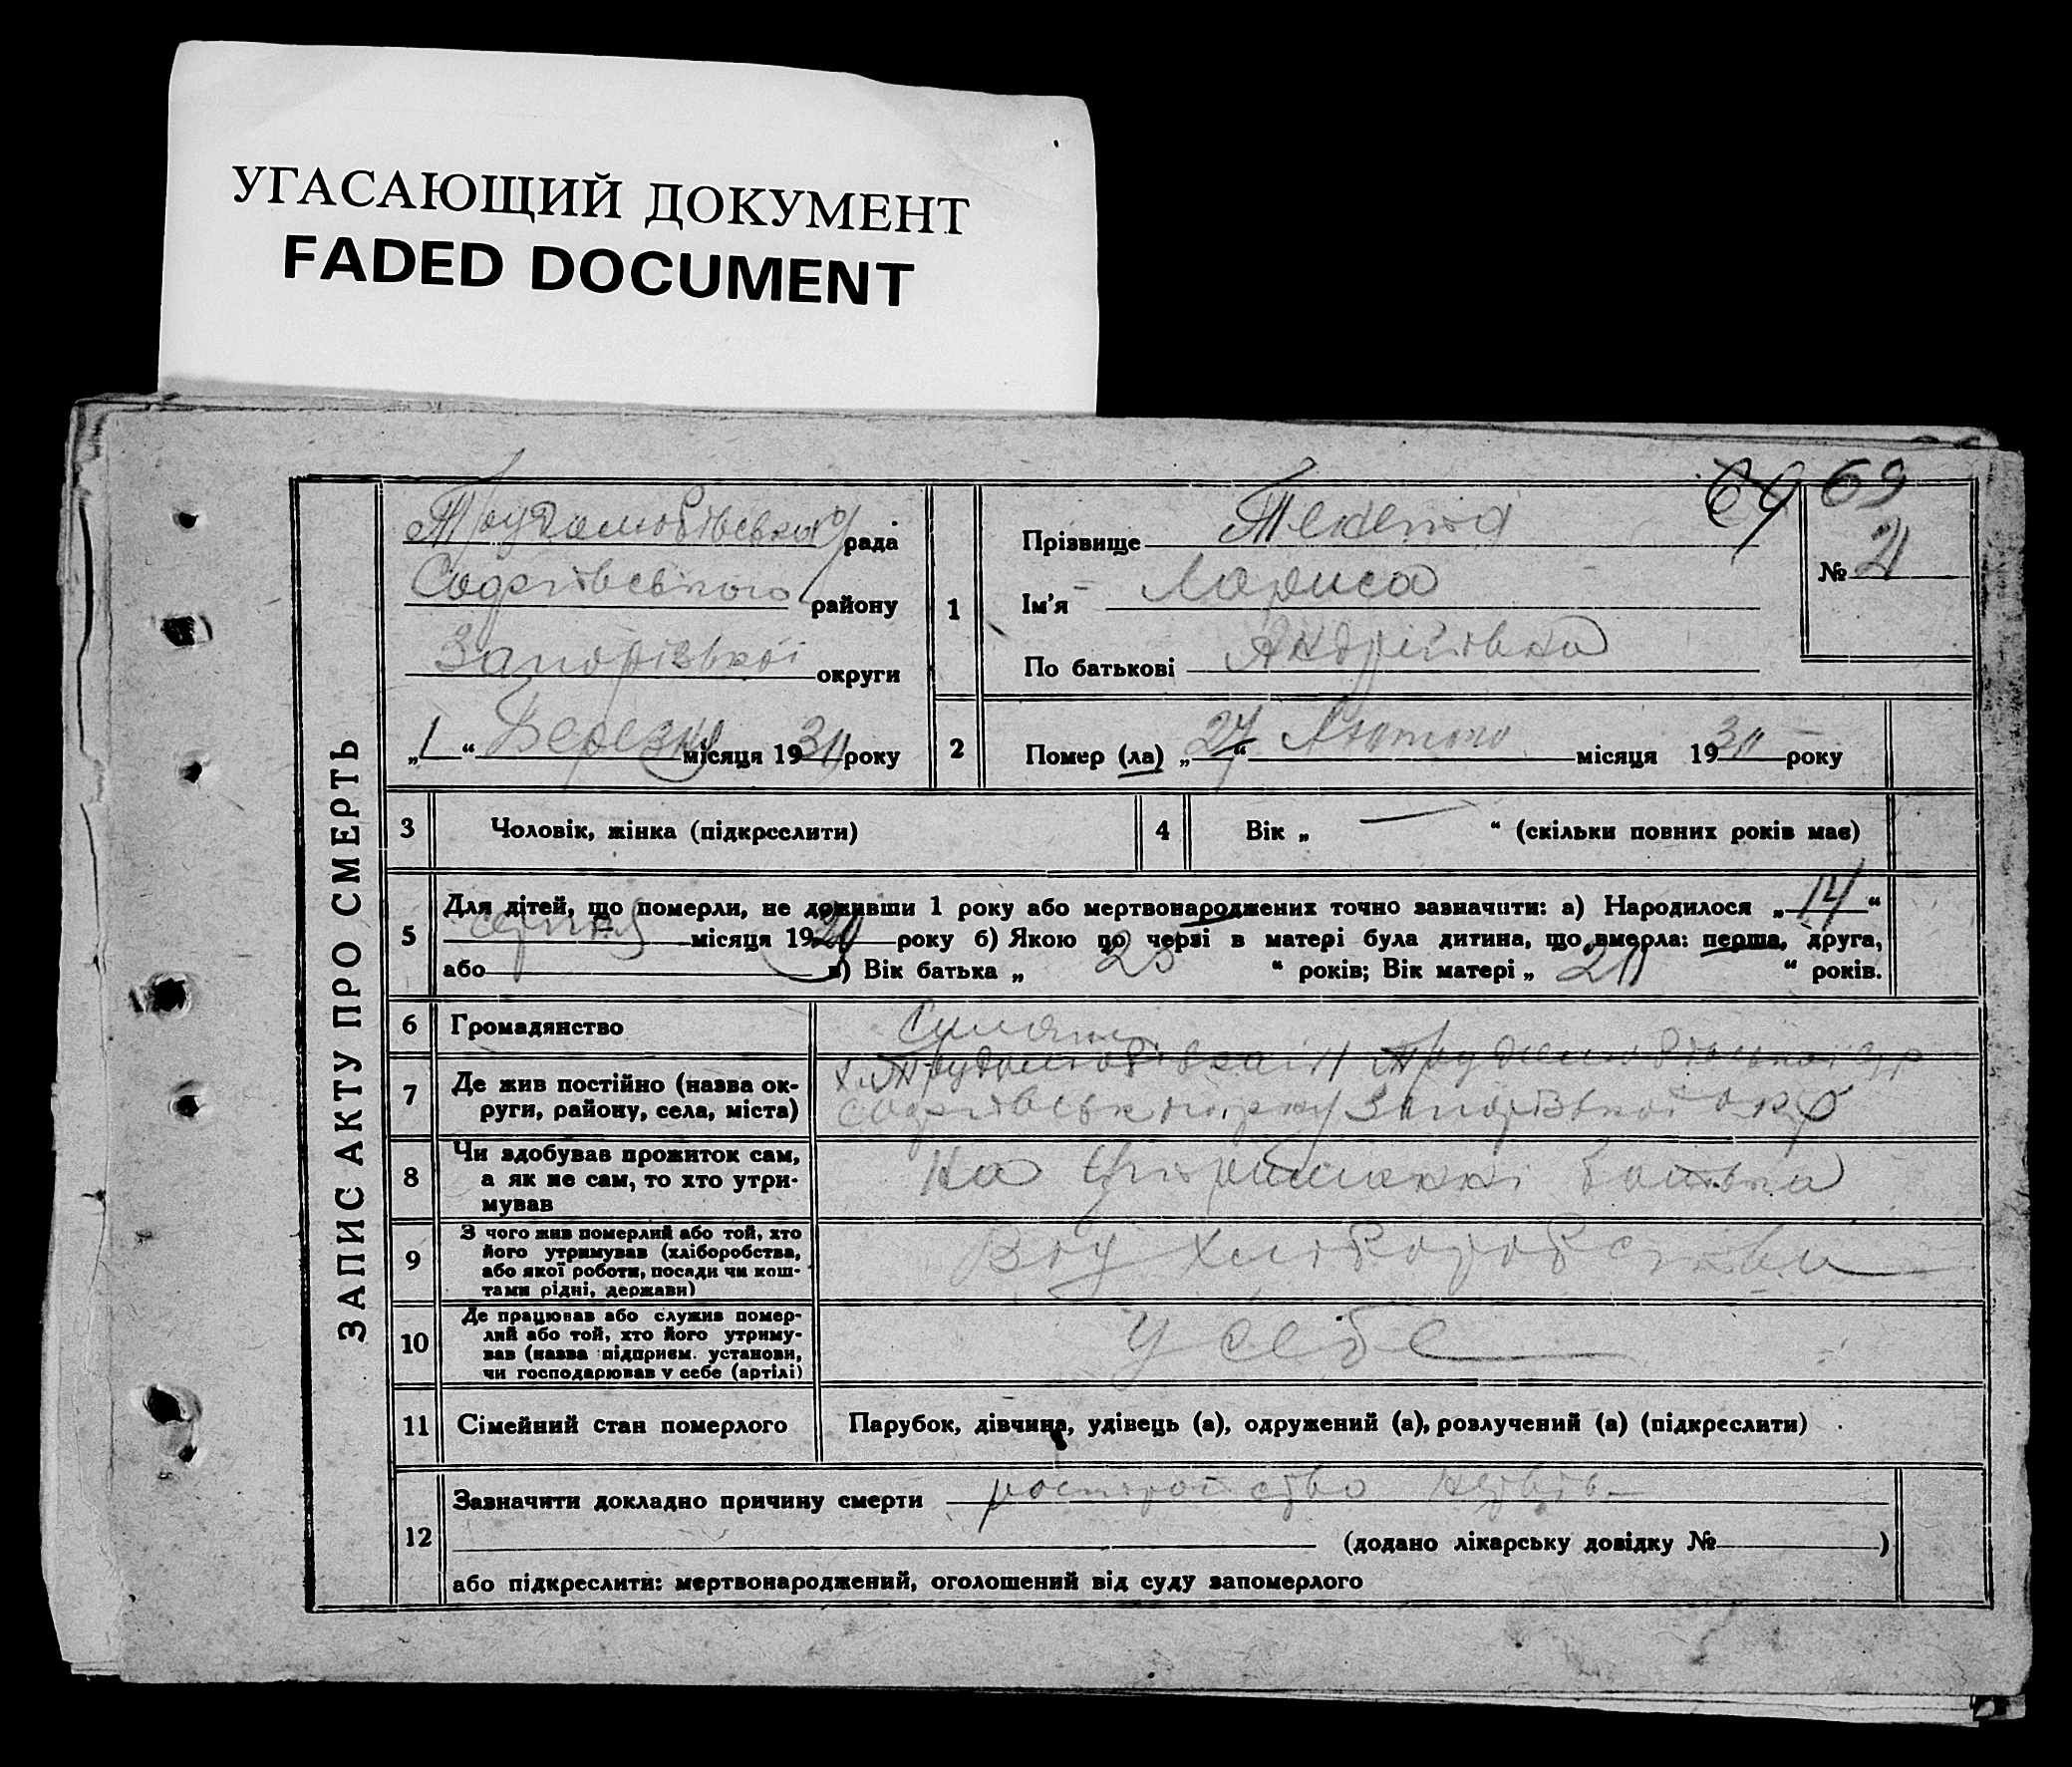 УГАСАЮЩИЙ ДОКУМЕНТ
FADED DOCUMENT
69 69
ЗАПИС АКТУ ПРО СМЕРТЬ
Трудолюбівська рада
Софіївського району
Запорізької округи
„1“ Березня місяця 1930 року
1
Прізвище
Ім'я Лариса
По батькові Андріївна
№ 21
2
Помер (ла) „27“ Лютого місяця 1930 року
3
Чоловік, жінка (підкреслити)
4
Вік „ — “ (скільки повних років має)
5
Для дітей, що померли, не доживши 1 року або мертвонароджених точно зазначити: а) Народилося „14“
серпня місяця 1929 року б) Якою по черзі в матері була дитина, що вмерла: перша, друга,
або в) Вік батька „ “ років; Вік матері „ “ років.
6
Громадянство
7
Де жив постійно (назва ок-
руги, району, села, міста)
х. Трудолюбівка
Софіївського р-ну Запорізької окр
8
Чи здобував прожиток сам,
а як не сам, то хто утри-
мував
На утриманні батька
9
З чого жив померлий або той, хто
його утримував (хліборобства,
або якої роботи, посади чи кош-
тами рідні, держави)
Від хліборобства
10
Де працював або служив помер-
лий або той, хто його утриму-
вав (назва підприєм. установи,
чи господарював у себе (артілі)
У себе
11
Сімейний стан померлого
Парубок, дівчина, удівець (а), одружений (а), розлучений (а) (підкреслити)
12
Зазначити докладно причину смерти ростройство
(додано лікарську довідку № )
або підкреслити: мертвонароджений, оголошений від суду запомерлого